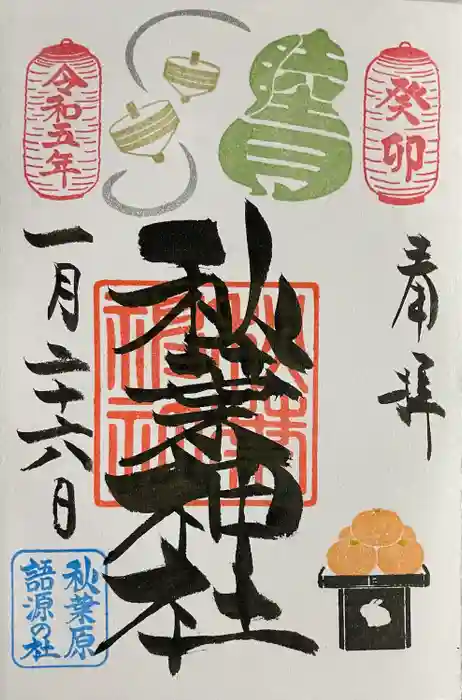 癸卯
睦月
令和五年
奉拝
秋葉神社
秋葉神社
一月二十六日
秋葉原
語源の社